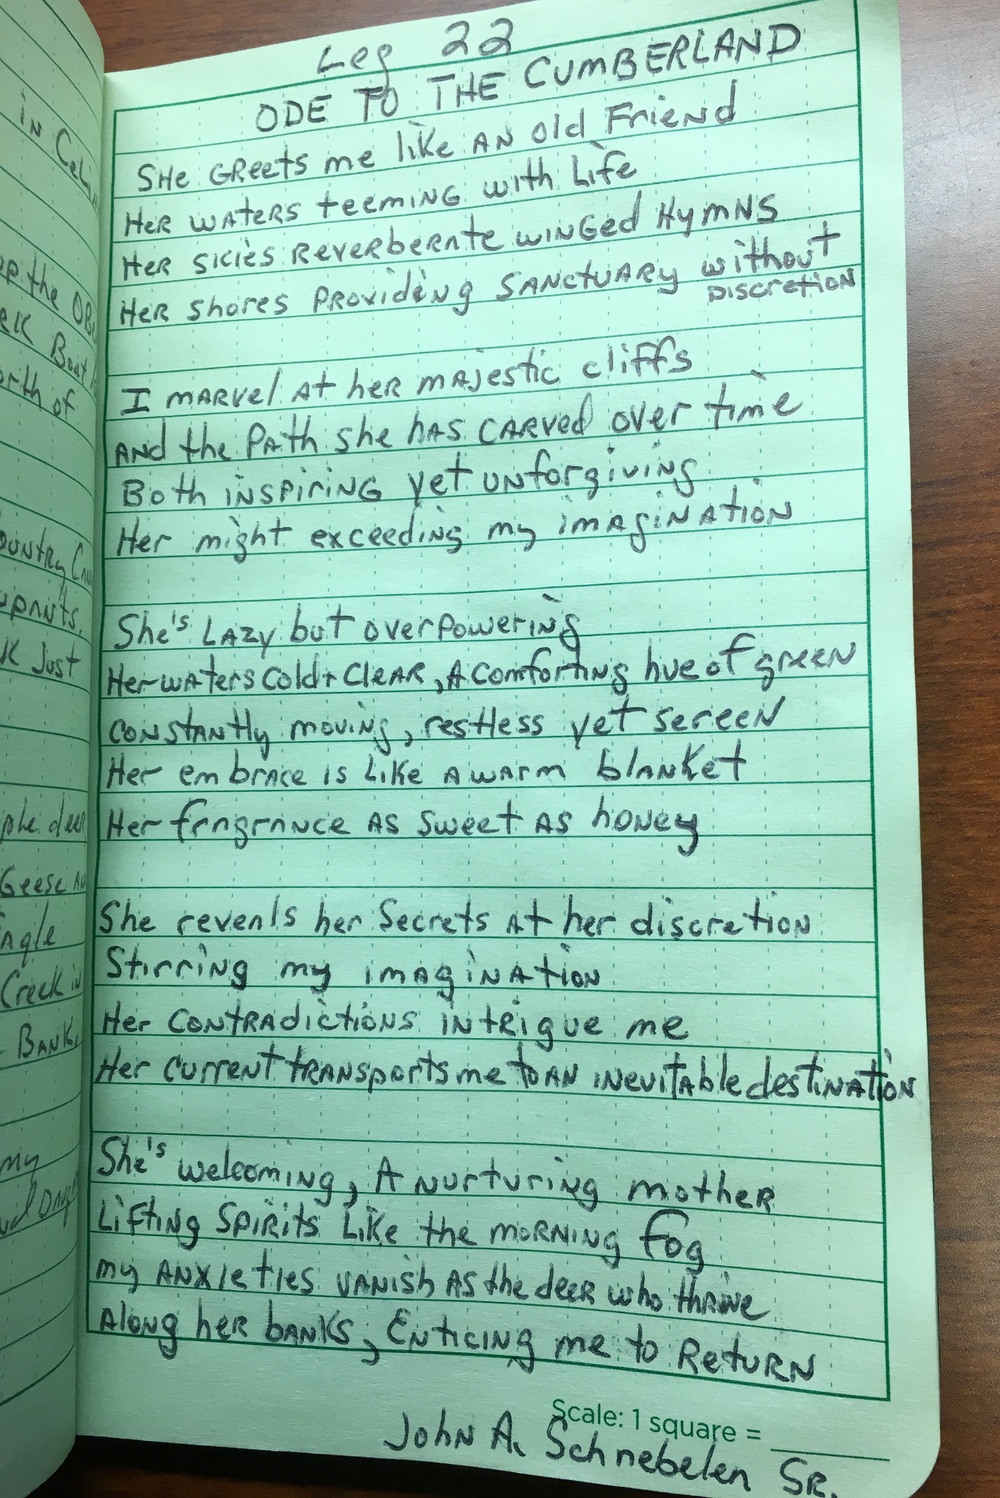 Leg 22
ODE TO THE CUMBERLAND
SHe GReets me like AN old Friend
Her WATERS teeming with Life
Her skies Reverberate WINGed HYMNS
Her Shores PROVIdiNg SANCTUARY without
DISCRETION
I MARVel At heR MAJestic cliffs
AND the PAth she hAS CARVED over time
Both INSPIRING yet UNforgiviNg
Her might exceeding my IMAGINATION
She's LAZY but overPowering
Her waters Cold + CleAR, A Comforting hue of green
CONSTANtly moving, restless yet sereen
Her embrace is Like A WARM blANKet
Her fragrance AS Sweet AS honey
She reveals her Secrets At her discretion
Stirring my IMAGINAtion
Her CONTRAdictions INTRIGUE me
Her Current TRANSports me to AN INEVITAble destiNATION
She's welcoming, A NURTURING motheR
Lifting SPIRITS Like the MORNING fog
my ANXIETIES VANISh AS the deeR who thrive
ALONG heR bANKS, ENTICING me to RetURN
Scale: 1 square =
JohN A. Schnebelen SR.
in
the
Boat
of
Country
Just
deer
Geese
Creek in
BANK
my